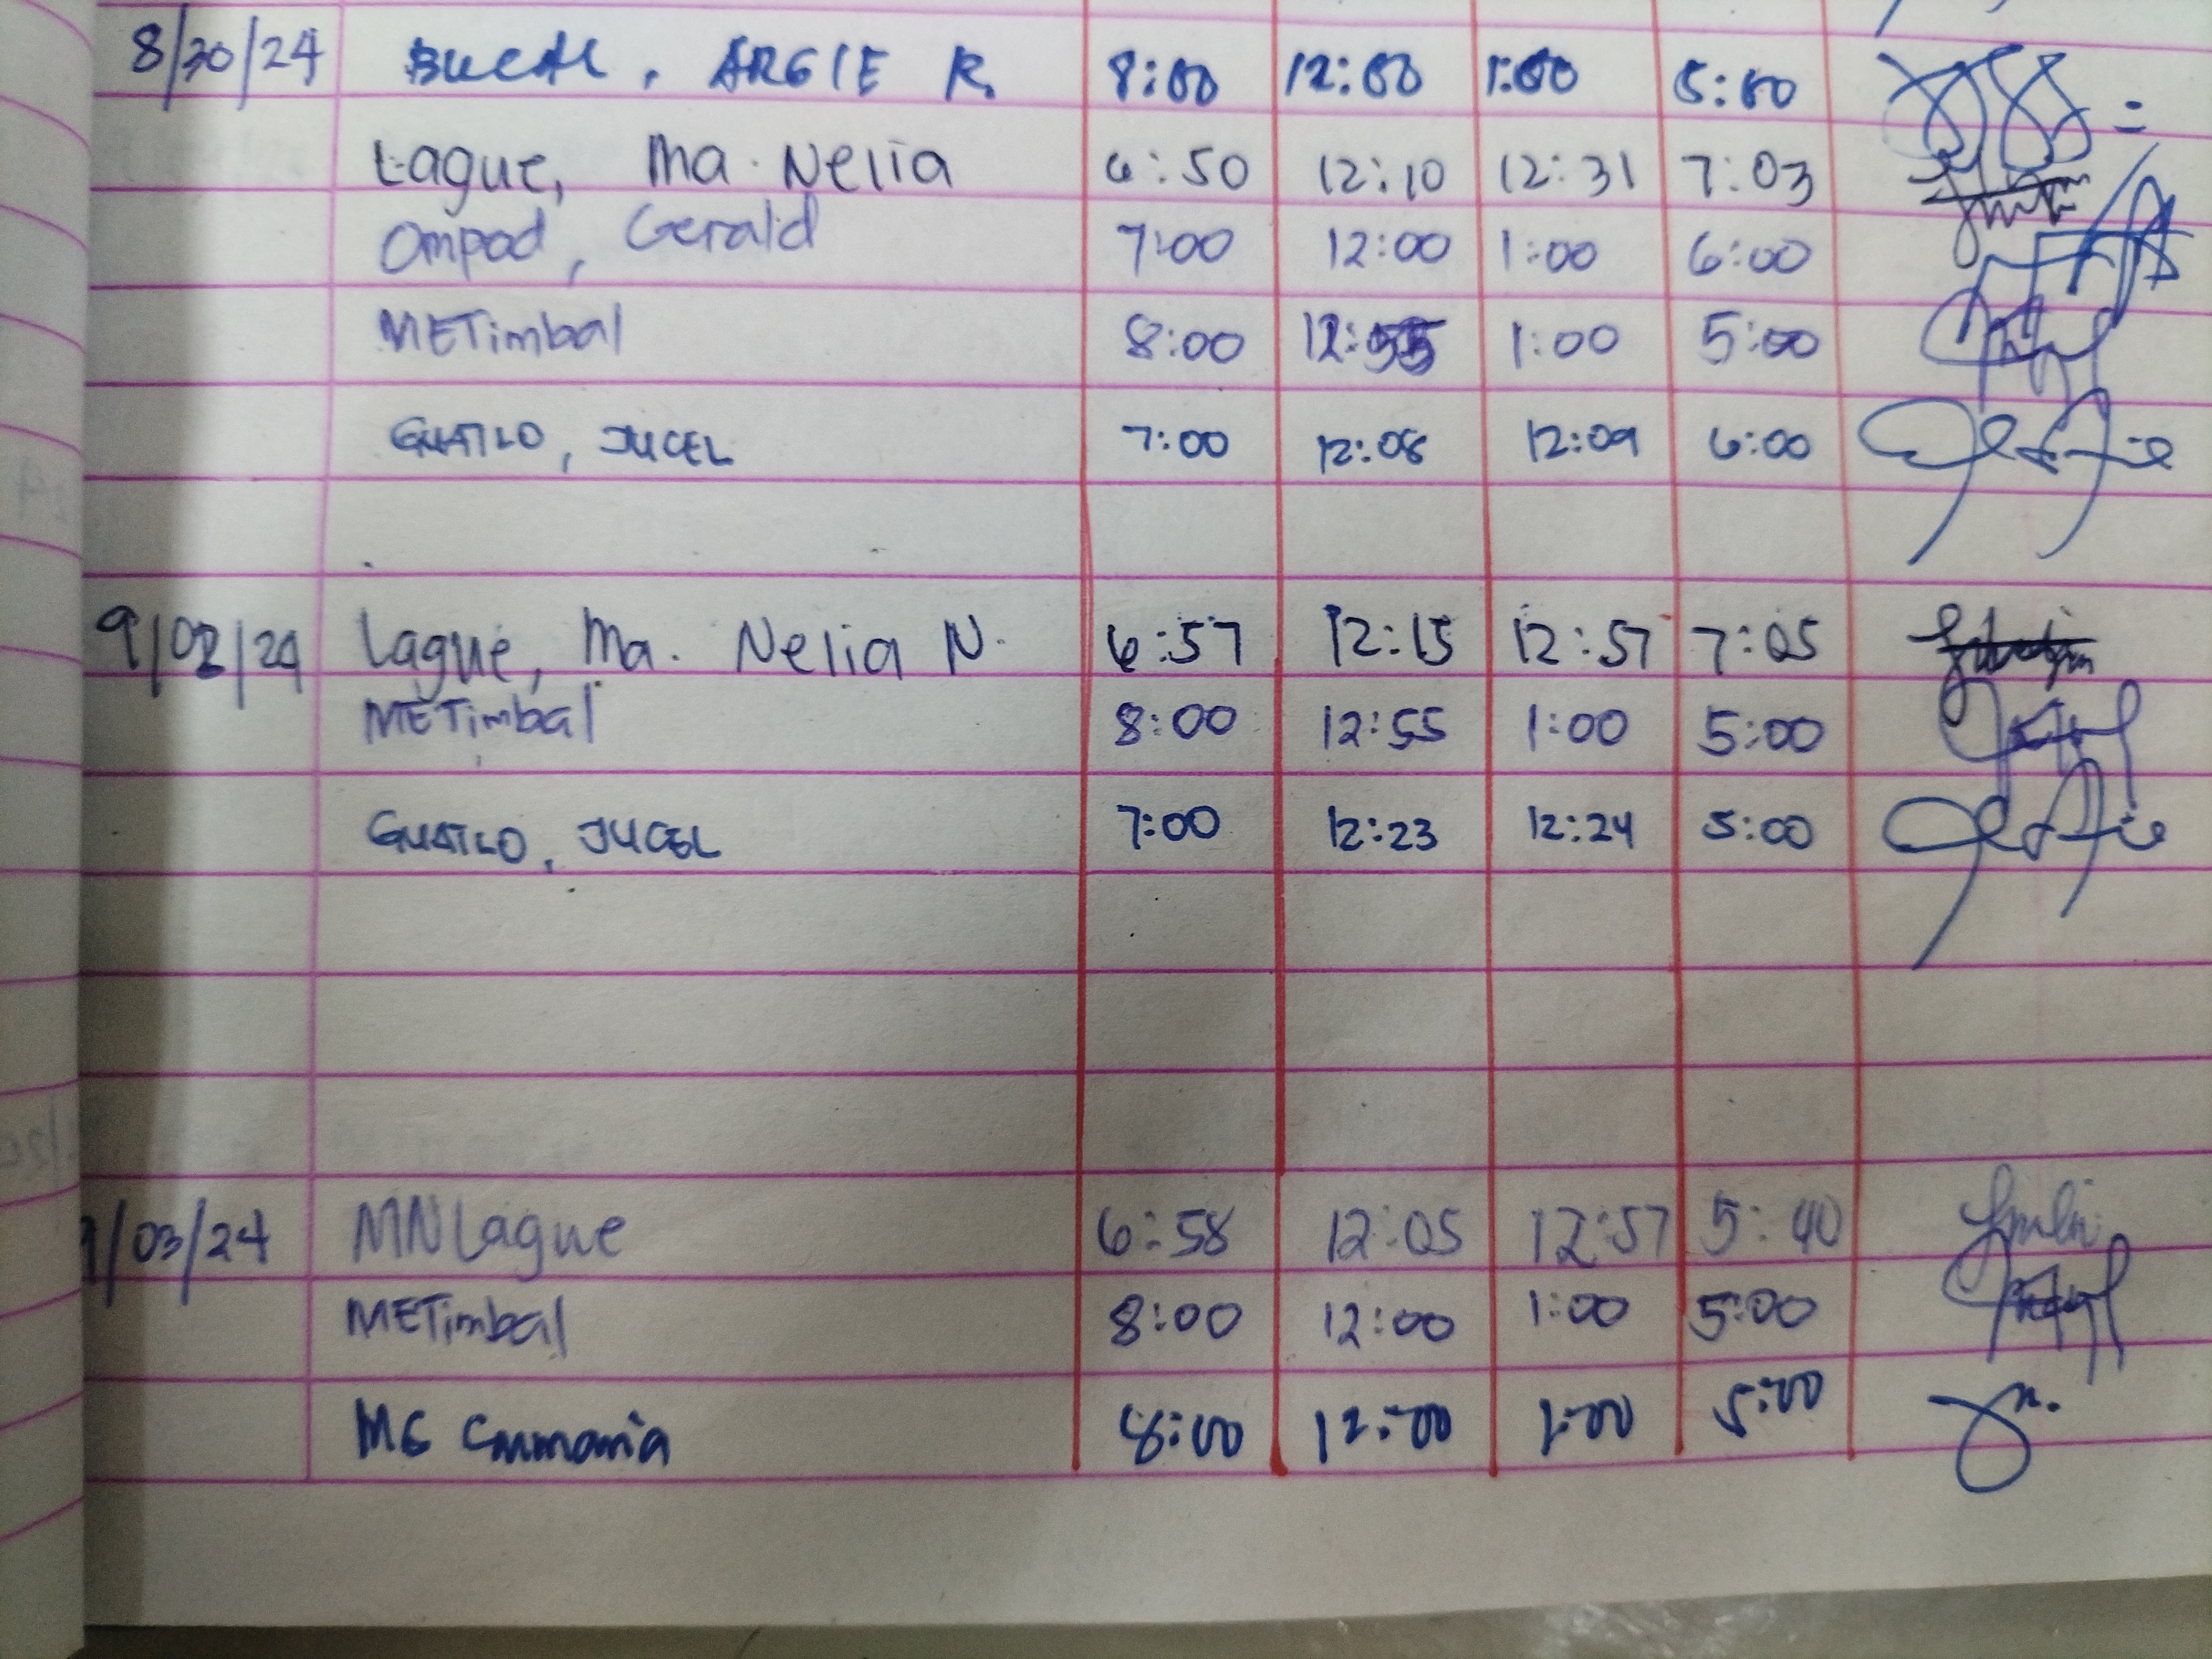 8/30/24 BUCAL, ARGIE R. 8:00 12:00 1:00 5:00
Lague, Ma. Nelia 6:50 12:10 12:31 7:03
Ompad, Gerald 7:00 12:00 1:00 6:00
METimbal 8:00 12:55 1:00 5:00
GUATLO, JUCEL 7:00 12:08 12:09 6:00
9/02/24 Lague, Ma. Nelia N. 6:57 12:15 12:57 7:05
METimbal 8:00 12:55 1:00 5:00
GUATLO, JUCEL 7:00 12:23 12:24 5:00
9/03/24 MNLague 6:58 12:05 12:57 5:40
METimbal 8:00 12:00 1:00 5:00
8:00 12:00 1:00 5:00